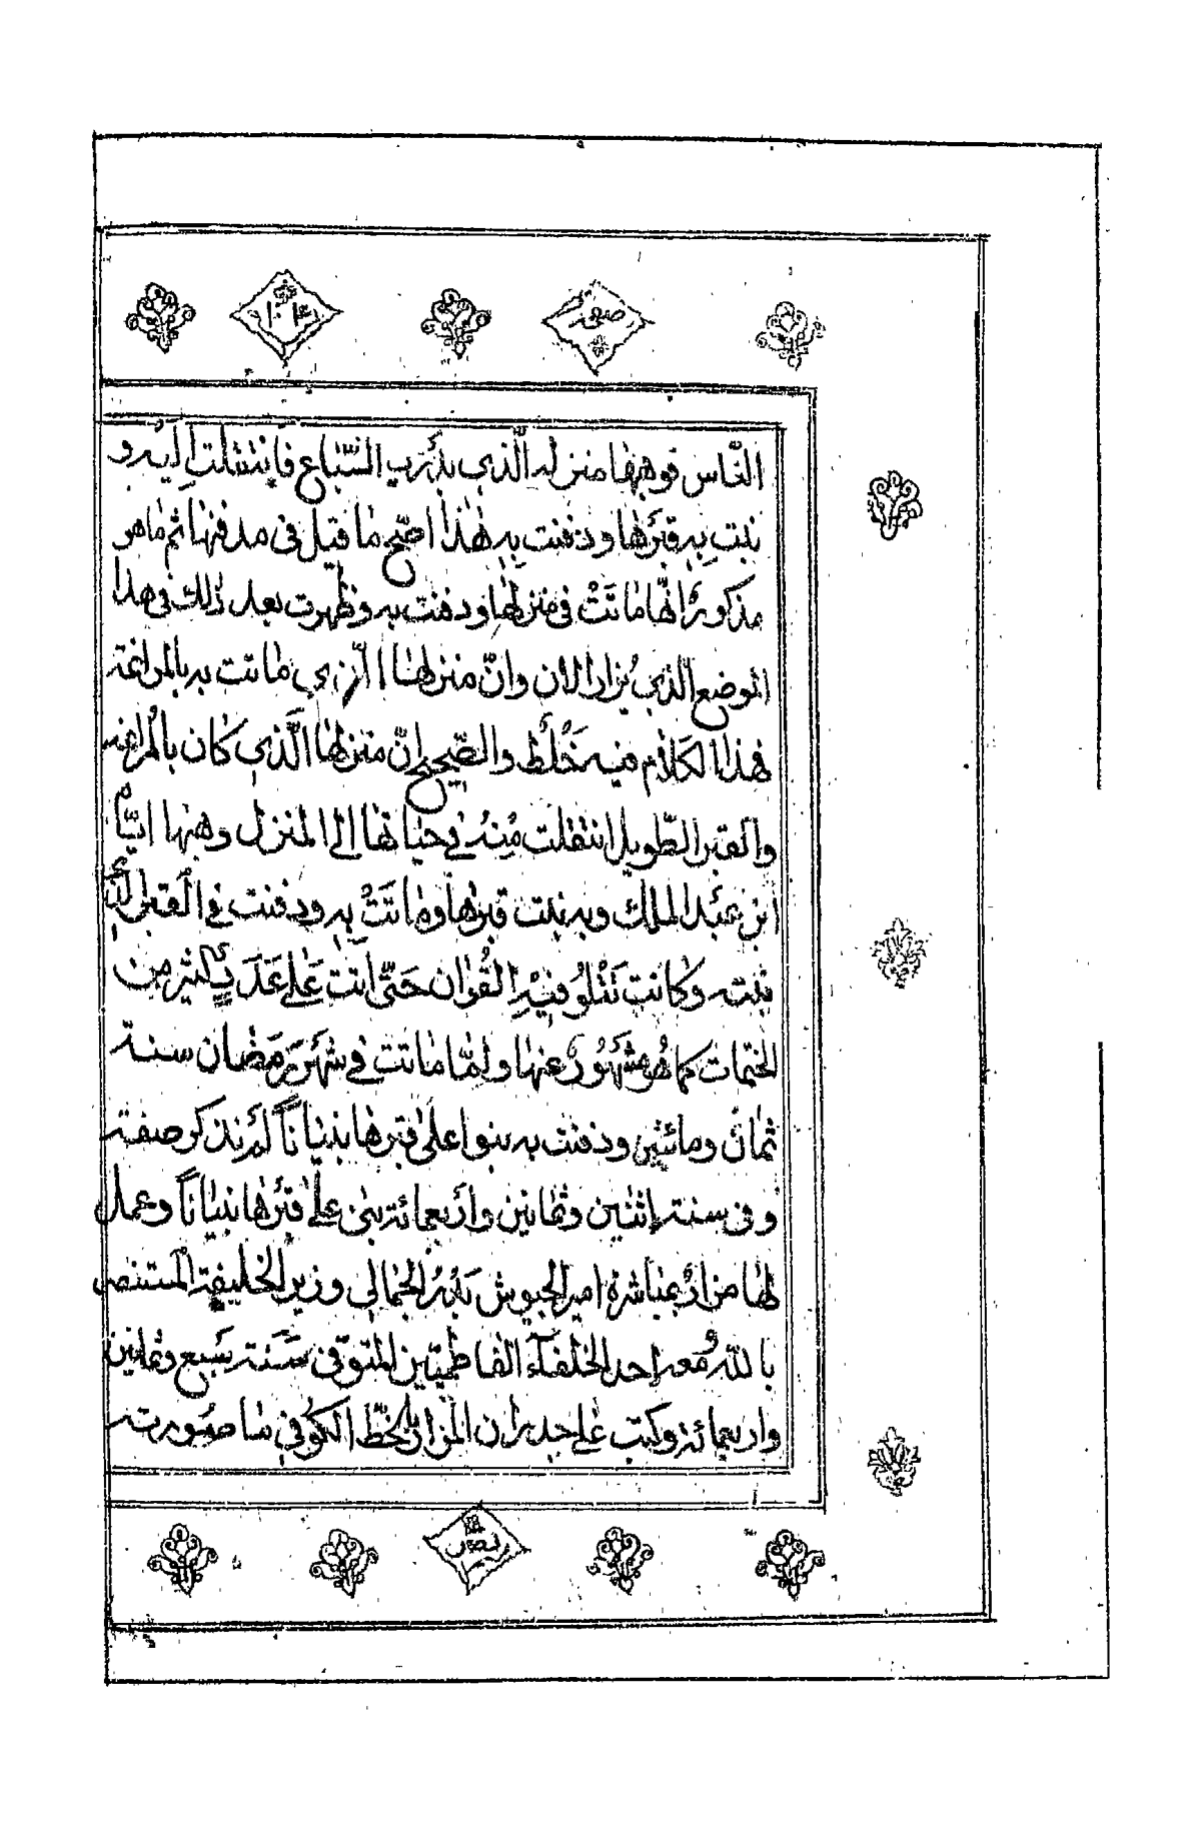 صفحة
النَّاس فوهبها منزله الَّذي بدَرب السّباع فانتقلت إليه و
بنت به قبرَها ودفنت به هٰذا اصحّ ما قيل في مدفنها ثم ما هو
مذكورٌ انّها ماتَتْ في منزلها ودفنت به وظهرت بعد ذلك في هذا
الموضع الَّذي يُزار الان وانّ منزلها الّذي ماتت به بالمراغة
فهذا الكلام فيه خَلْط والصّحيح انّ منزلها الَّذي كان بالمراغة
والقبر الطّويل انتقلت مِنهُ في حياتها الى المنزل وهبها ايّاه
ابن عَبد الملك وبه بنت قبرها وماتَتْ به ودفنت في القبر الَّذي
بنته وكانت تَتْلُو فيْهِ القُرآن حَتّى أتت عَلى عَدَدٍ كثير مِن
الختمات كما هُو مشَهُورٌ عنها ولمّا ماتت في شَهْر رَمَضان سنة
ثمان ومائتين ودفنت به بنوا على قبرها بنياناً لم نذكر صفته
وفي سنة إثنين وثمانين وأربعمائة بنى على قبْرها بنياناً وعمل
لها مزارٌ بمباشرة امير الجيوش بَدْرُ الجمالي وزير الخليفة المستنصر
بالله مَعد احد الخلفآء الفاطميّين المتوفّى سَنَة سَبع وثمانين
واربعمائة وكتب على جدران المزار بالخطّ الكوفي ما صُورته